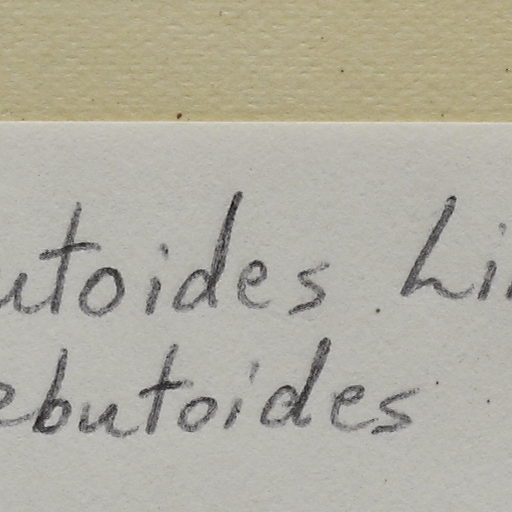 utoides Lin
ebutoides